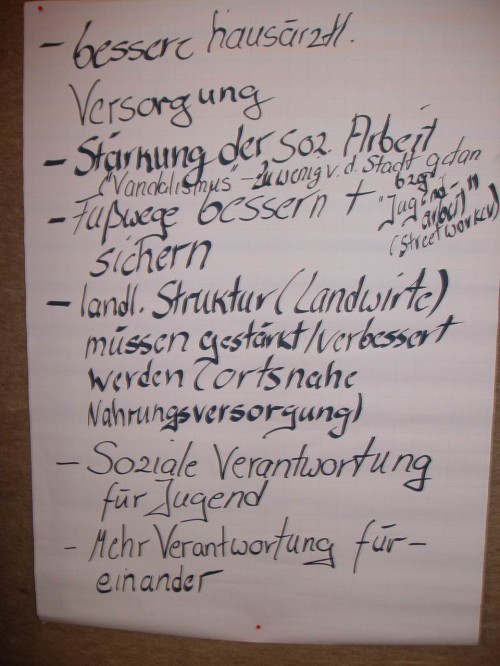 - bessere hausärztl.
Versorgung
- Stärkung der soz. Arbeit
("Vandalismus" - zu wenig v. d. Stadt getan
bzgl.
"Jugend-
arbeit"
(Streetworker)
- Fußwege bessern +
sichern
- landl. Struktur (Landwirte)
müssen gestärkt/verbessert
werden (ortsnahe
Nahrungsversorgung)
- Soziale Verantwortung
für Jugend
- Mehr Verantwortung für-
einander